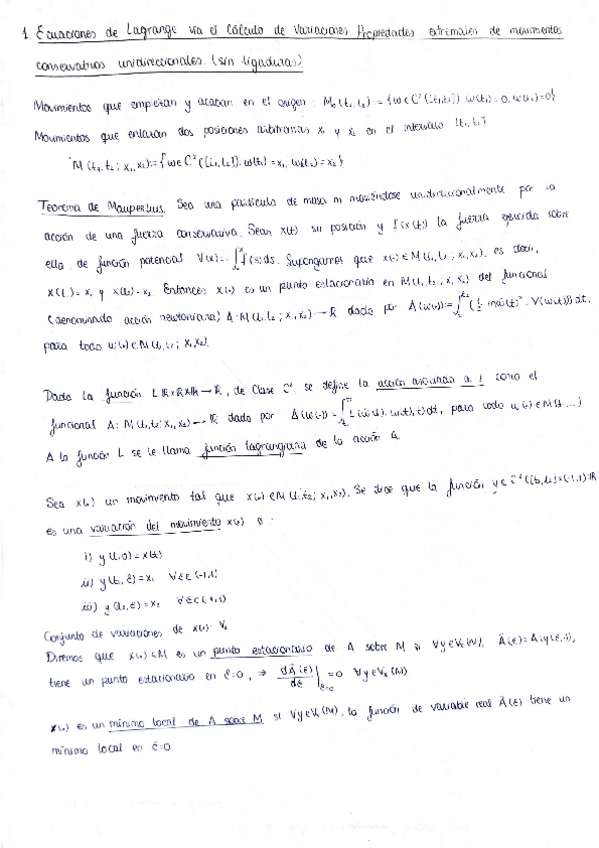 1. Ecuaciones de Lagrange vía el Cálculo de Variaciones Propiedades extremales de movimientos
conservativos unidireccionales. (sin ligaduras)
Movimientos que empiezan y acaban en el origen: M₀(t₁,t₂) := {w ∈ C²([t₁,t₂]) w(t₁)=0, w(t₂)=0}
Movimientos que enlazan dos posiciones arbitrarias x₁ y x₂ en el intervalo [t₁,t₂]
M(t₁,t₂; x₁,x₂) := {w ∈ C²([t₁,t₂]). w(t₁)=x₁, w(t₂)=x₂}
Teorema de Maupertuis. Sea una partícula de masa m moviéndose unidireccionalmente por la
acción de una fuerza conservativa. Sean x(t) su posición y f(x(t)) la fuerza ejercida sobre
ella de función potencial V(x)=-∫f(s)ds. Supongamos que x(·)∈M(t₁,t₂; x₁,x₂), es decir,
x(t₁)=x₁ y x(t₂)=x₂. Entonces x(·) es un punto estacionario en M(t₁,t₂; x₁,x₂) del funcional
(denominado acción newtoniana) A: M(t₁,t₂; x₁,x₂) → ℝ dado por A(w(·)) := ∫(½ mẇ(t)² - V(w(t)))dt,
para todo w(·)∈M(t₁,t₂; x₁,x₂)
Dada la función L: ℝ×ℝ×ℝ → ℝ, de clase C², se define la acción asociada a L como el
funcional A: M(t₁,t₂; x₁,x₂) → ℝ dado por A(w(·)) = ∫L(ẇ(t), w(t), t)dt, para todo w(·)∈M(t...)
A la función L se le llama función lagrangiana de la acción A.
Sea x(·) un movimiento tal que x(·)∈M(t₁,t₂; x₁,x₂). Se dice que la función y∈C²([t₁,t₂]×(-1,1);ℝ
es una variación del movimiento x(·) si:
i) y(t,0)=x(t)
ii) y(t₁,ε)=x₁ ∀ε∈(-1,1)
iii) y(t₂,ε)=x₂ ∀ε∈(-1,1)
Conjunto de variaciones de x(·): Vₓ
Diremos que x(·)∈M es un punto estacionario de A sobre M si ∀y∈Vₓ(M), Â(ε)=A(y(ε,·)),
tiene un punto estacionario en ε=0, ⇒ dÂ(ε)/dε|ε=0 =0 ∀y∈Vₓ(M)
x(·) es un mínimo local de A sobre M si ∀y∈Vₓ(M), la función de variable real Â(ε) tiene un
mínimo local en ε=0.